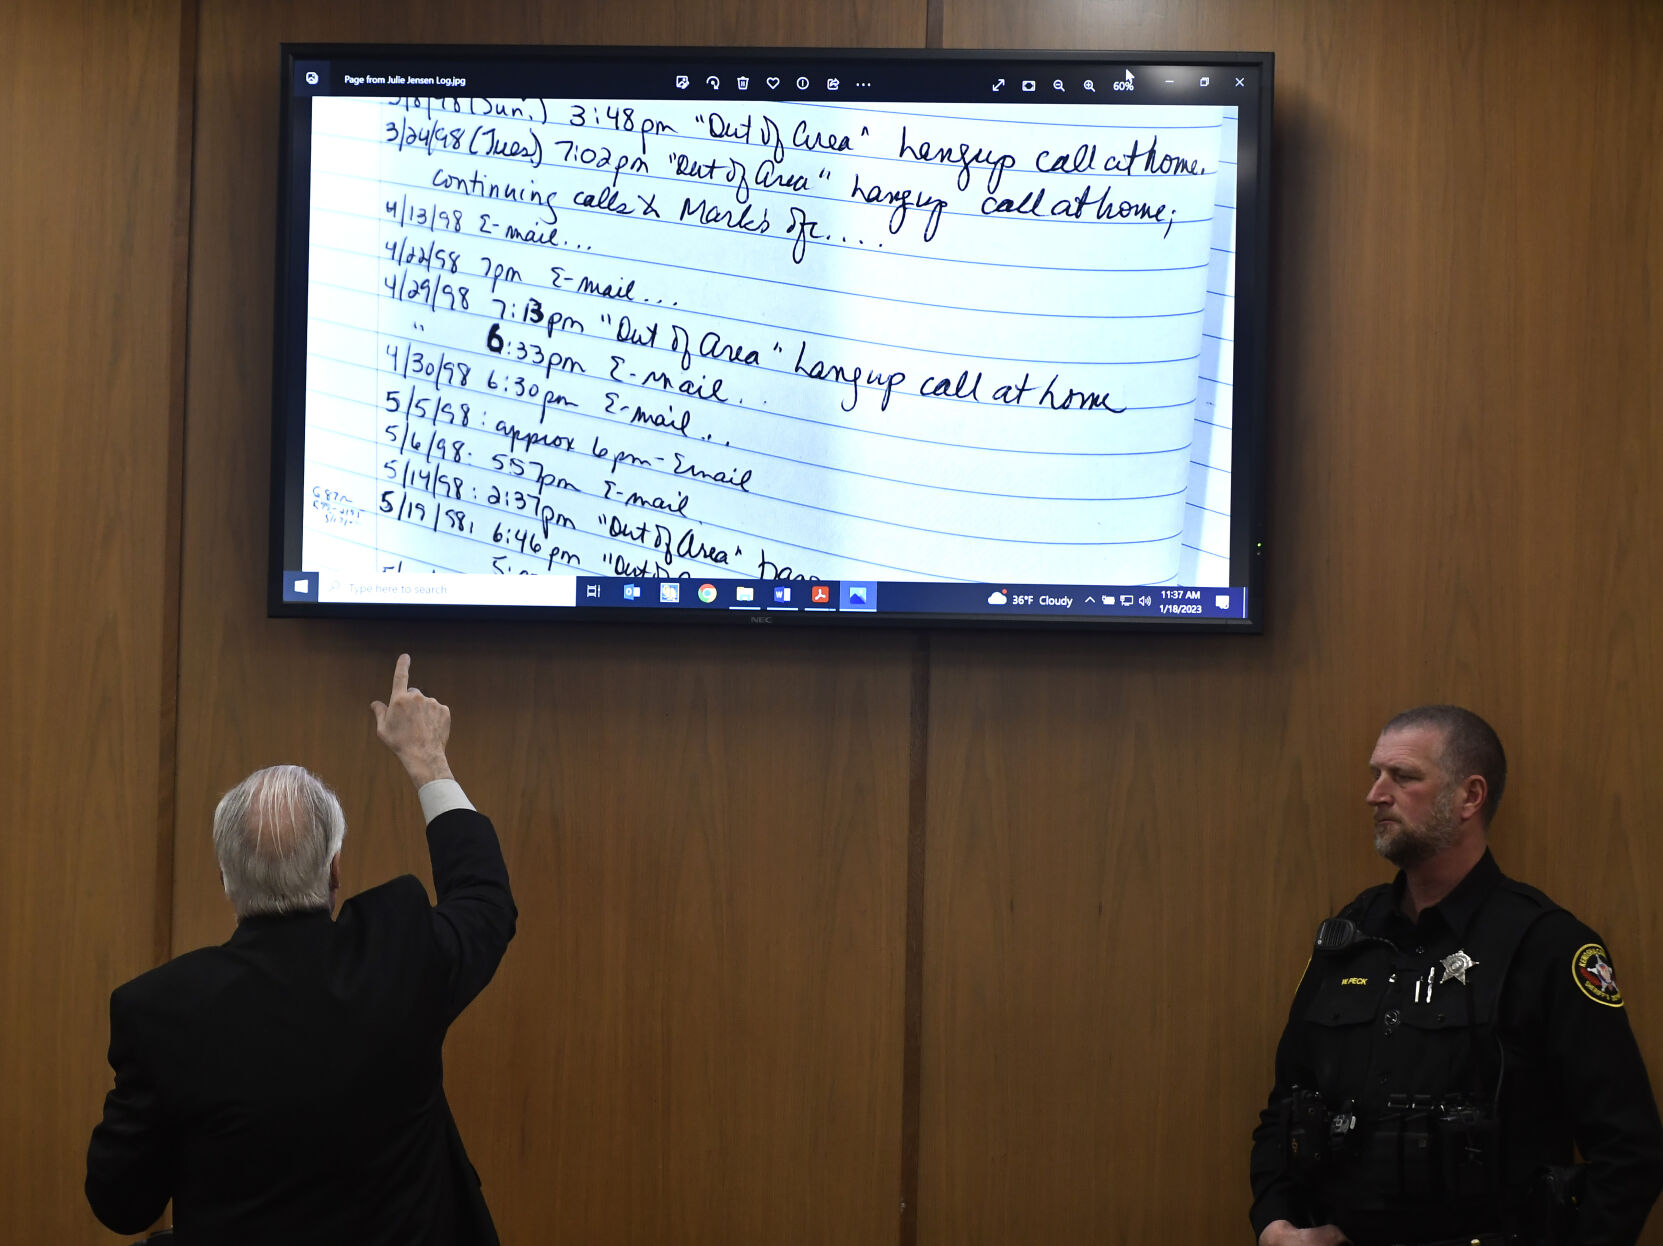 Page from Julie Jensen Log.jpg
60%
3/8/98 (Sun.) 3:48pm "Out of Area" hangup call at home.
3/24/98 (Tues) 7:02pm "Out of Area" hangup call at home;
continuing calls & Mark's ofc....
4/13/98 E-mail...
4/22/98 7pm E-mail...
4/29/98 7:13pm "Out of Area" hangup call at home
" 6:33pm E-mail...
4/30/98 6:30pm E-mail...
5/5/98: approx 6pm-Email
5/6/98: 557pm E-mail
5/14/98: 2:37pm "Out of Area" hang
5/19/98, 6:46pm "Out of
Type here to search
36°F Cloudy
11:37 AM
1/18/2023
NEC
W.PECK
KENOSHA
SHERIFF'S